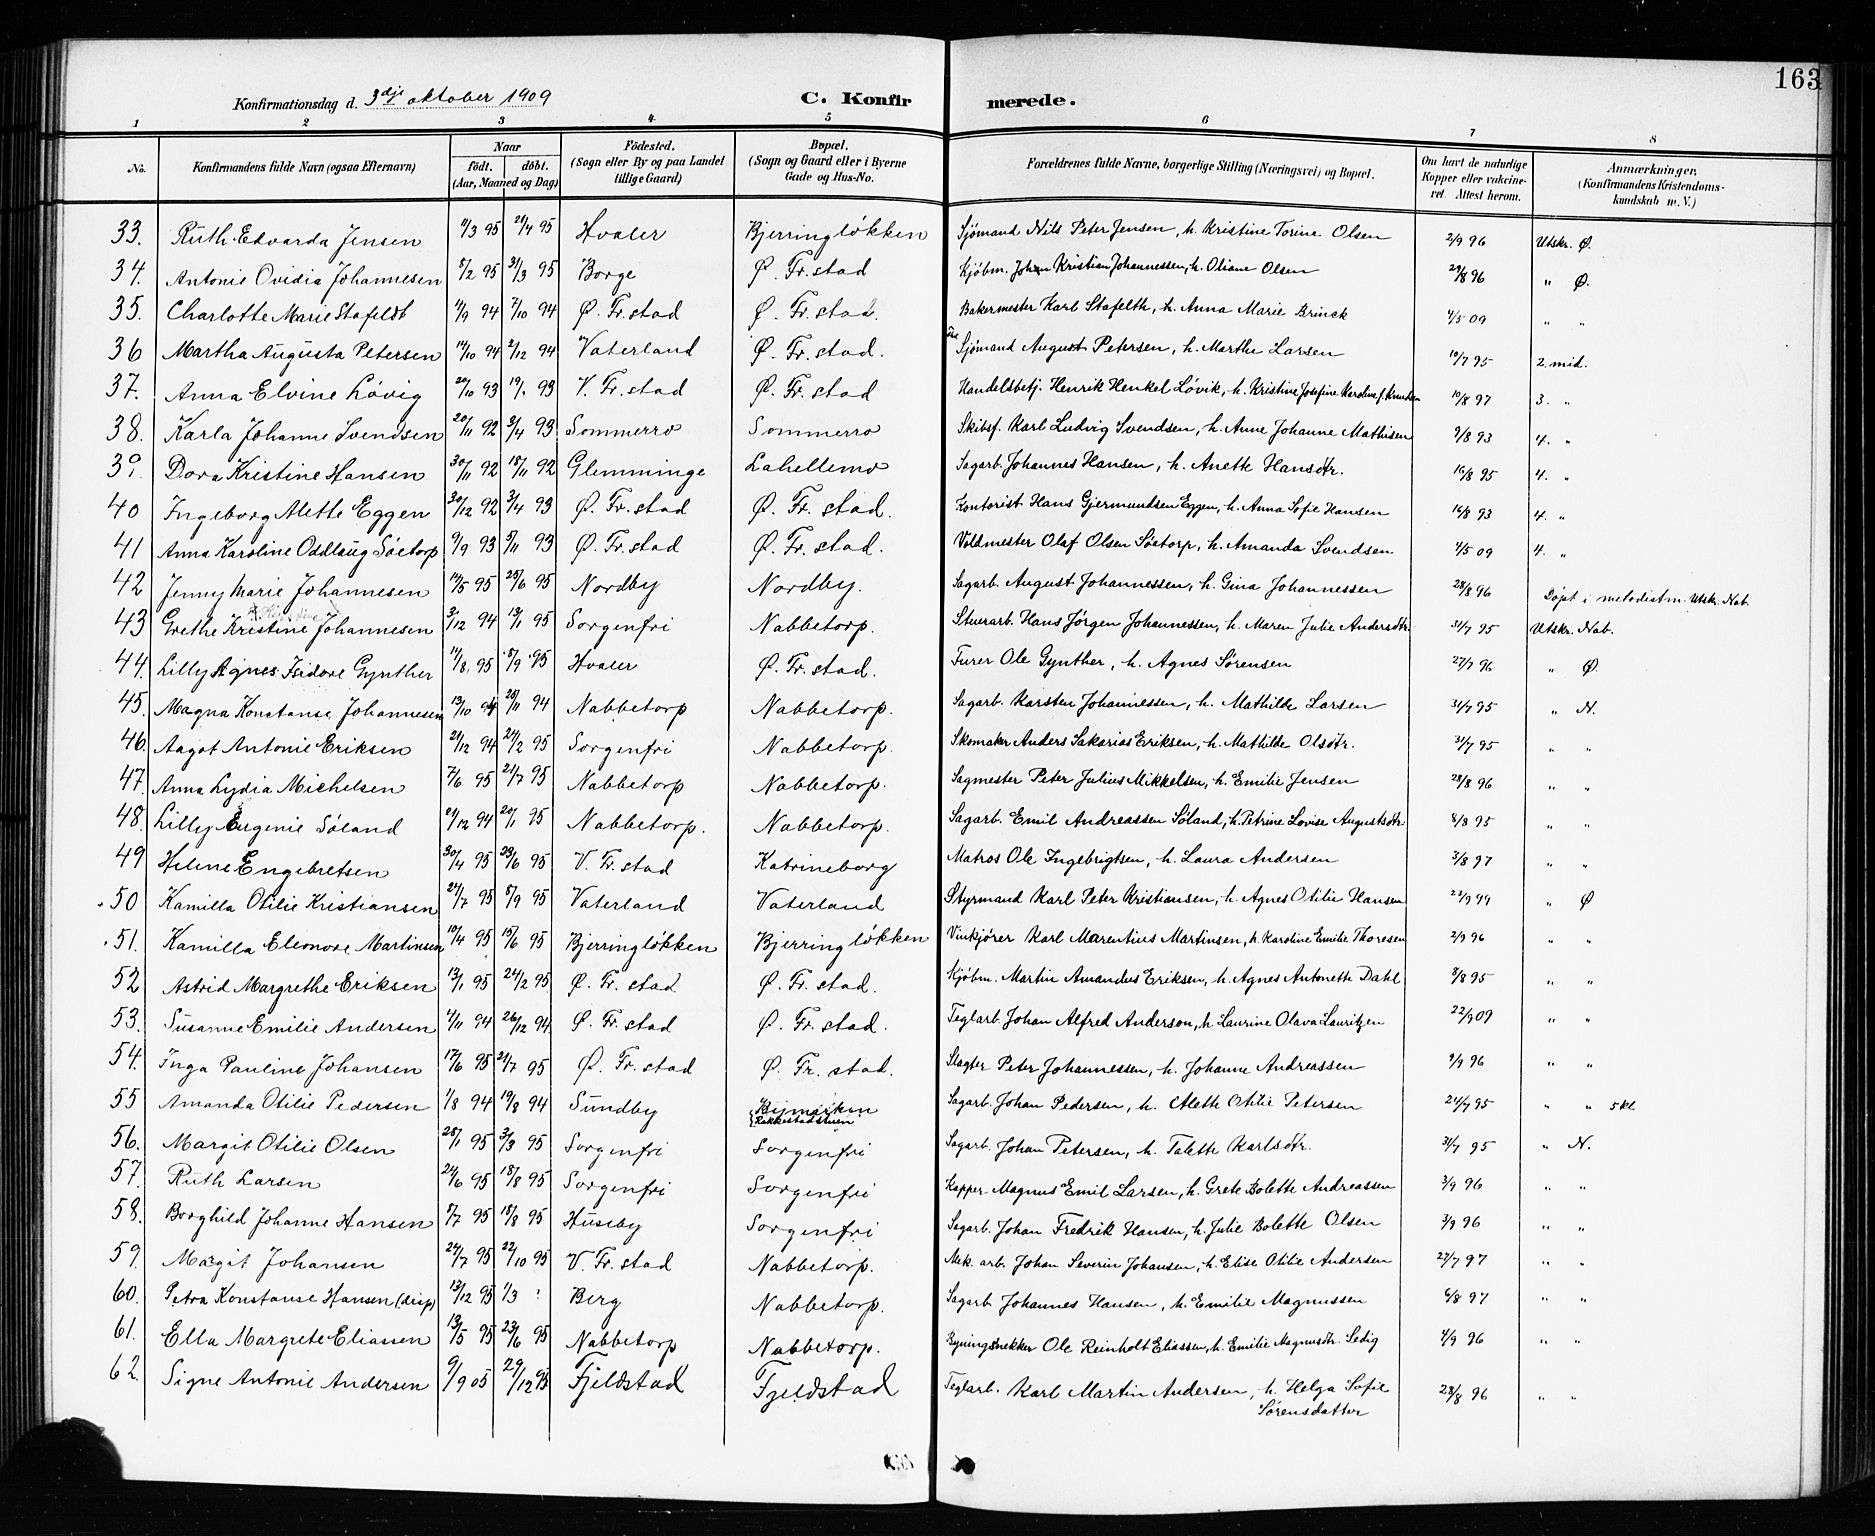 163
Konfirmationsdag d. 3dje oktober 1909 C. Konfirmerede.
1 2 3 4 5 6 7 8
No. Konfirmandens fulde Navn (ogsaa Efternavn) Naar født. døbt. (Aar, Maaned og Dag) Fødested. (Sogn eller By og paa Landet tillige Gaard) Bopæl. (Sogn og Gaard eller i Byerne Gade og Hus-No. Forældrenes fulde Navne, borgerlige Stilling (Næringsvei) og Bopæl. Om havt de naturlige Kopper eller vakcineret. Attest herom. Anmærkninger. (Konfirmandens Kristendomskundskab m. V.)
33. Ruth Edvarda Jensen 11/3 95 21/4 95 Hvaler Bjerringløkken Sjømand Nils Peter Jensen, h. Kristine Torine Olsen 2/9 96 Utskr. Ø.
34. Antonie Ovidia Johannesen 8/2 95 31/3 95 Borge Ø. Fr.stad Kjøbm. Johan Kristian Johannessen, h. Oliane Olsen 29/8 96 " Ø.
35. Charlotte Marie Stafeldt 11/9 94 7/10 94 Ø. Fr.stad Ø. Fr.stad. Bakermester Karl Stafelth, h. Anna Marie Brinck 4/5 09 " "
36 Martha Augusta Petersen 14/10 94 2/12 94 Vaterland Ø. Fr.stad. Sjømand August Petersen, h. Marthe Larsen 10/7 95 2. mid.
37. Anna Elvine Løvig 20/10 93 19/1 93 V. Fr.stad Ø. Fr.stad Handelsbetj. Henrik Henkel Løvik, h. Kristine Josefine Karoline f. Knudsen 10/8 97 3. "
38. Karla Johanne Svendsen 20/11 92 3/4 93 Sommerro Sommerro Skibsf. Karl Ludvig Svendsen, h. Anne Johanne Mathisen 9/8 93 4. "
39. Dora Kristine Hansen 30/11 92 18/11 92 Glemminge Lahellemo Sagarb. Johannes Hansen, h. Anette Hansdtr. 16/8 95 4. "
40 Ingeborg Alette Eggen 30/12 92 3/4 93 Ø. Fr.stad Ø. Fr.stad. Kontorist Hans Gjermundsen Eggen, h. Anna Sofie Hansen 16/8 93 4. "
41 Anna Karoline Oddlaug Søetorp 9/9 93 5/11 93 Ø. Fr.stad Ø. Fr.stad. Voldmester Olaf Olsen Søetorp, h. Amanda Svendsen 4/5 09 4. "
42 Jenny Marie Johannesen 14/5 95 25/6 95 Nordby Nordby. Sagarb. August Johannessen, h. Gina Johannessen 28/8 96 Døpt i metodistm. Utskr. Nab.
43 Grethe Kristine Johannesen 3/12 94 13/1 95 Sorgenfri Nabbetorp. Stuerarb. Hans Jørgen Johannessen, h. Maren Julie Andersdtr. 31/7 95 Utskr. Nab.
44. Lilly Agnes Isidore Gynther 14/8 95 8/9 95 Hvaler Ø. Fr.stad. Furer Ole Gynther, h. Agnes Sørensen 27/7 96 " Ø.
45. Magna Konstanse Johannesen 13/10 94 25/11 94 Nabbetorp Nabbetorp. Sagarb. Karsten Johannessen, h. Mathilde Larsen 31/7 95 " N.
46. Aagot Antonie Eriksen 21/12 94 24/2 95 Sorgenfri Nabbetorp. Skomaker Anders Sakarias Eriksen, h. Mathilde Olsdtr. 31/7 95 " "
47. Anna Lydia Michelsen 7/6 95 21/7 95 Nabbetorp Nabbetorp. Sagmester Peter Julius Mikkelsen, h. Emilie Jensen 28/8 96 " "
48. Lilly Eugenie Søland 21/12 94 20/1 95 Nabbetorp. Nabbetorp. Sagarb. Emil Andreassen Søland, h. Petrine Lovise Augustsdtr 8/8 95 " "
49 Helene Engebretsen 30/4 95 23/6 95 V. Fr.stad Katrineborg Matros Ole Ingebrigtsen, h. Laura Andersen 3/8 97 " "
50 Kamilla Otilie Kristiansen 24/7 95 8/9 95 Vaterland Vaterland Styrmand Karl Peter Kristiansen, h. Agnes Otilie Hansen 22/9 99 " Ø
51. Kamilla Eleonore Martinsen 10/4 95 15/6 95 Bjerringløkken Bjerringløkken Vinkjører Karl Marentius Martinsen, h. Karoline Emilie Thoresen 2/9 96 " "
52 Astrid Margrethe Eriksen 13/1 95 24/2 95 Ø. Fr. stad Ø. Fr. stad. Kjøbm. Martin Amandus Eriksen, h. Agnes Antonette Dahl 8/8 95 " "
53. Susanne Emilie Andersen 4/11 94 26/12 94 Ø. Fr. stad Ø. Fr. stad. Teglarb. Johan Alfred Anderson, h. Laurine Olava Lauritzen 22/9 09 " "
54. Inga Pauline Johansen 17/6 95 21/7 95 Ø. Fr.stad Ø. Fr. stad. Slagter Peter Johannessen, h. Johanne Andreassen 9/9 96 " "
55 Amanda Otilie Pedersen 1/8 94 19/8 94 Sundby Bymarken Rakkestadstuen Sagarb. Johan Pedersen, h. Alette Otilie Petersen 24/7 95 " " skl
56. Margit Otilie Olsen 28/1 95 3/3 95 Sorgenfri Sorgenfri Sagarb. Johan Petersen, h. Talette Karlsdtr. 31/7 95 " N.
57. Ruth Larsen 24/6 95 18/8 95 Sorgenfri Sorgenfri Kopper- Magnus Emil Larsen, h. Grete Bolette Andreassen 3/9 96 " "
58. Borghild Johanne Hansen 5/7 95 18/8 95 Huseby Sorgenfri Sagarb. Johan Fredrik Hansen, h. Julie Bolette Olsen 3/9 96 " "
59. Margit Johansen 24/7 95 22/10 95 V. Fr.stad Nabbetorp. Mek. arb. Johan Severin Johansen, h. Elise Otilie Andersen 27/7 97 " "
60. Petra Konstanse Hansen (disp) 12/12 95 1/3 ? Berg Nabbetorp. Sagarb. Johannes Hansen, h. Emilie Magnussen 6/8 97 " "
61. Ella Margrete Eliassen 13/5 95 23/6 95 Nabbetorp Nabbetorp. Bygningsnekker Ole Reinholt Eliassen, h. Emilie Magnusdtr. Sedig 4/9 96 " "
62. Signe Antonie Andersen 9/9 05 29/12 95 Fjeldstad Fjeldstad Teglarb. Karl Martin Andersen, h. Helga Sofie Sørensdatter 28/8 96 " "